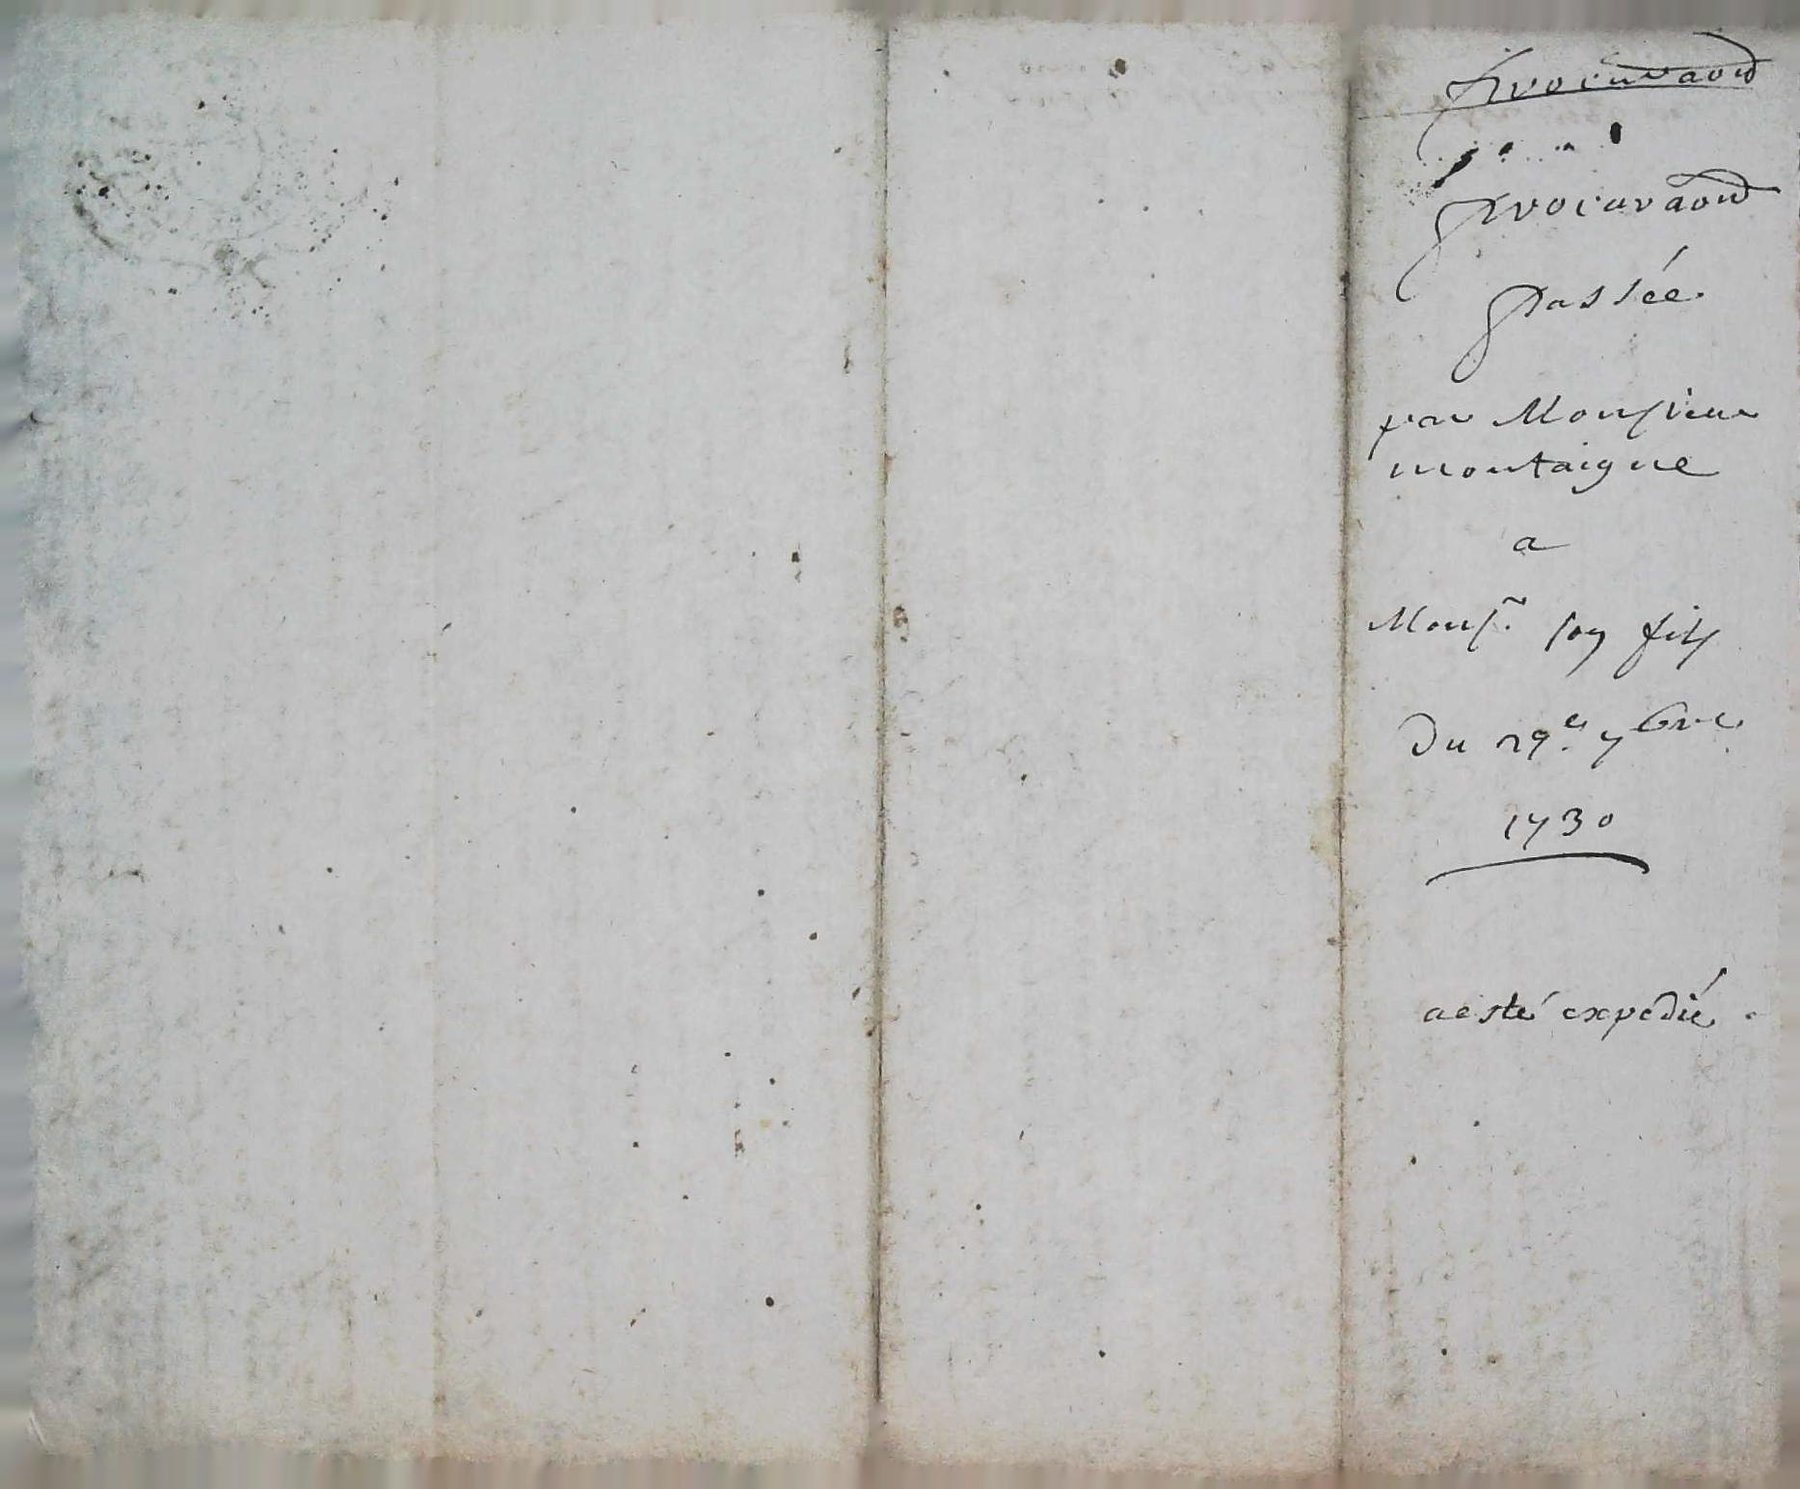 Procuraon
Procuraon
passée
par Monsieur
montaigne
a
Monsr. son fils
Du 29e. 7bre
1730
a esté expedié